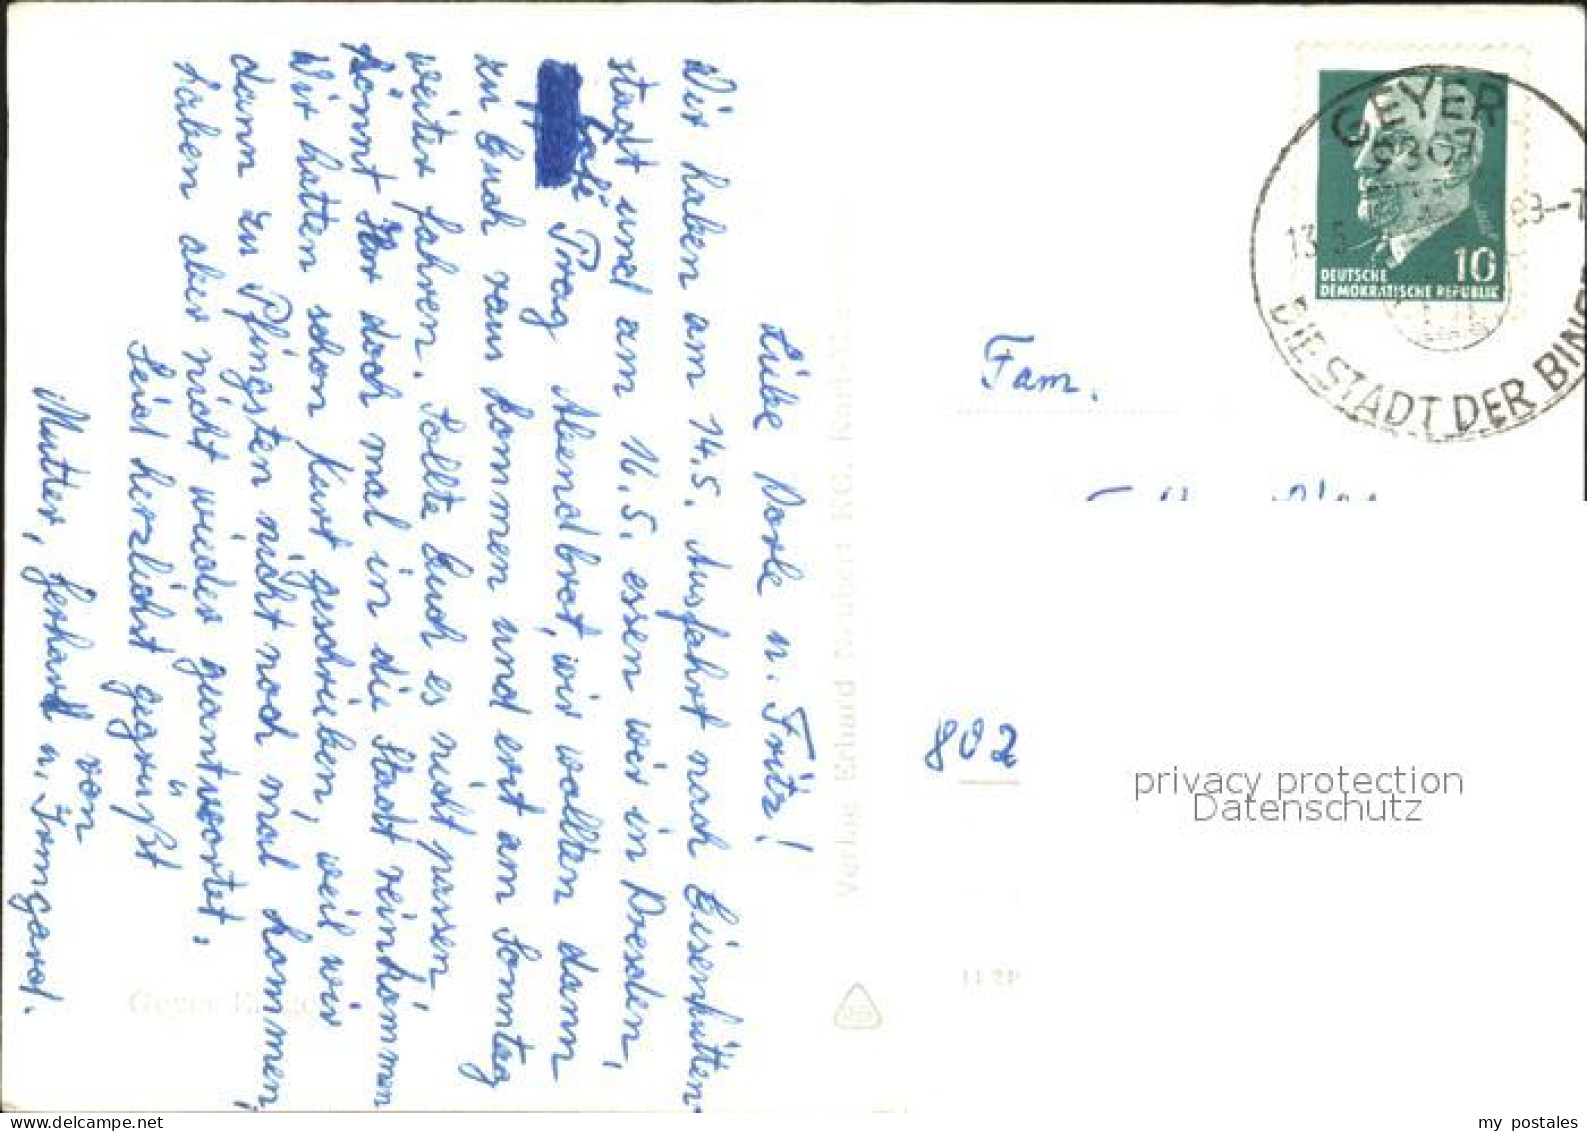 Liebe Dorle u. Fritz!
Wir haben am 14.5. Ausfahrt nach Eisenhütten-
stadt und am 16.5. essen wir in Dresden,
Café Prag Abendbrot, wir wollten dann
zu Euch raus kommen und erst am Sonntag
weiter fahren. Sollte Euch es nicht passen,
könnt Ihr doch mal in die Stadt reinkommen
Wir hatten schon Kurt geschrieben, weil wir
dann zu Pfingsten nicht noch mal kommen,
haben aber nicht wieder geantwortet.
Seid herzlichst gegrüßt
von
Mutter, Gerhard u. Irmgard.
Verlag Erhard Neubert KG,
Geyer
GEYER
9303
13.5
DIE STADT DER
10
DEUTSCHE
DEMOKRATISCHE REPUBLIK
Fam.
802
privacy protection
Datenschutz
my postales